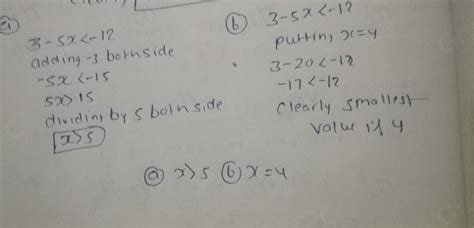 a
3-5x<-12
adding -3 both side
-5x<-15
5x>15
dividing by 5 both side
x>5
b
3-5x<-12
putting x=4
3-20<-12
-17<-12
clearly smallest
value is 4
a x>5 b x=4